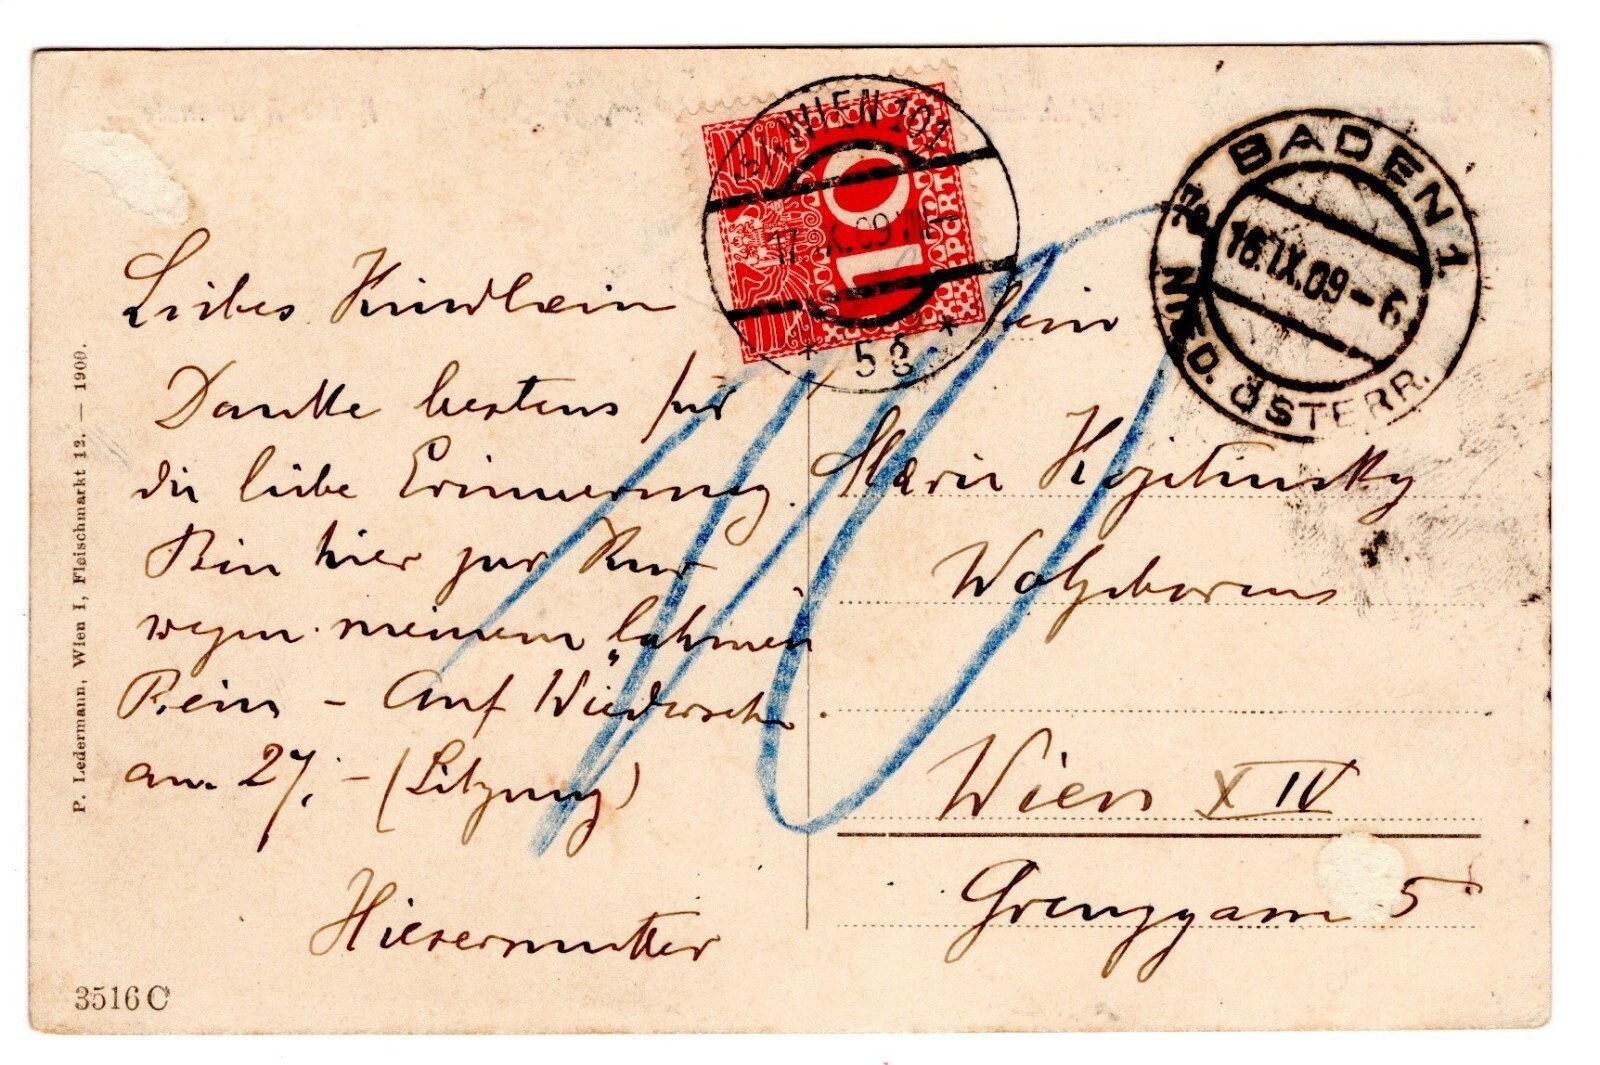 WIEN 101
17.IX.09.VIII
10
PORTO
* 5g *
BADEN 1
16.IX.09-6
NIED. ÖSTERR.
Liebes Kindlein
Danke bestens für
die liebe Erinnerung.
Bin hier zur Kur
wegen meinem „lahmen
Bein – Auf Wiedersehn.
am 27; – (Sitzung)
Hierermutter
10
Marie
Wien XIV
5
P. Ledermann, Wien I, Fleischmarkt 12. — 1909.
3516 C